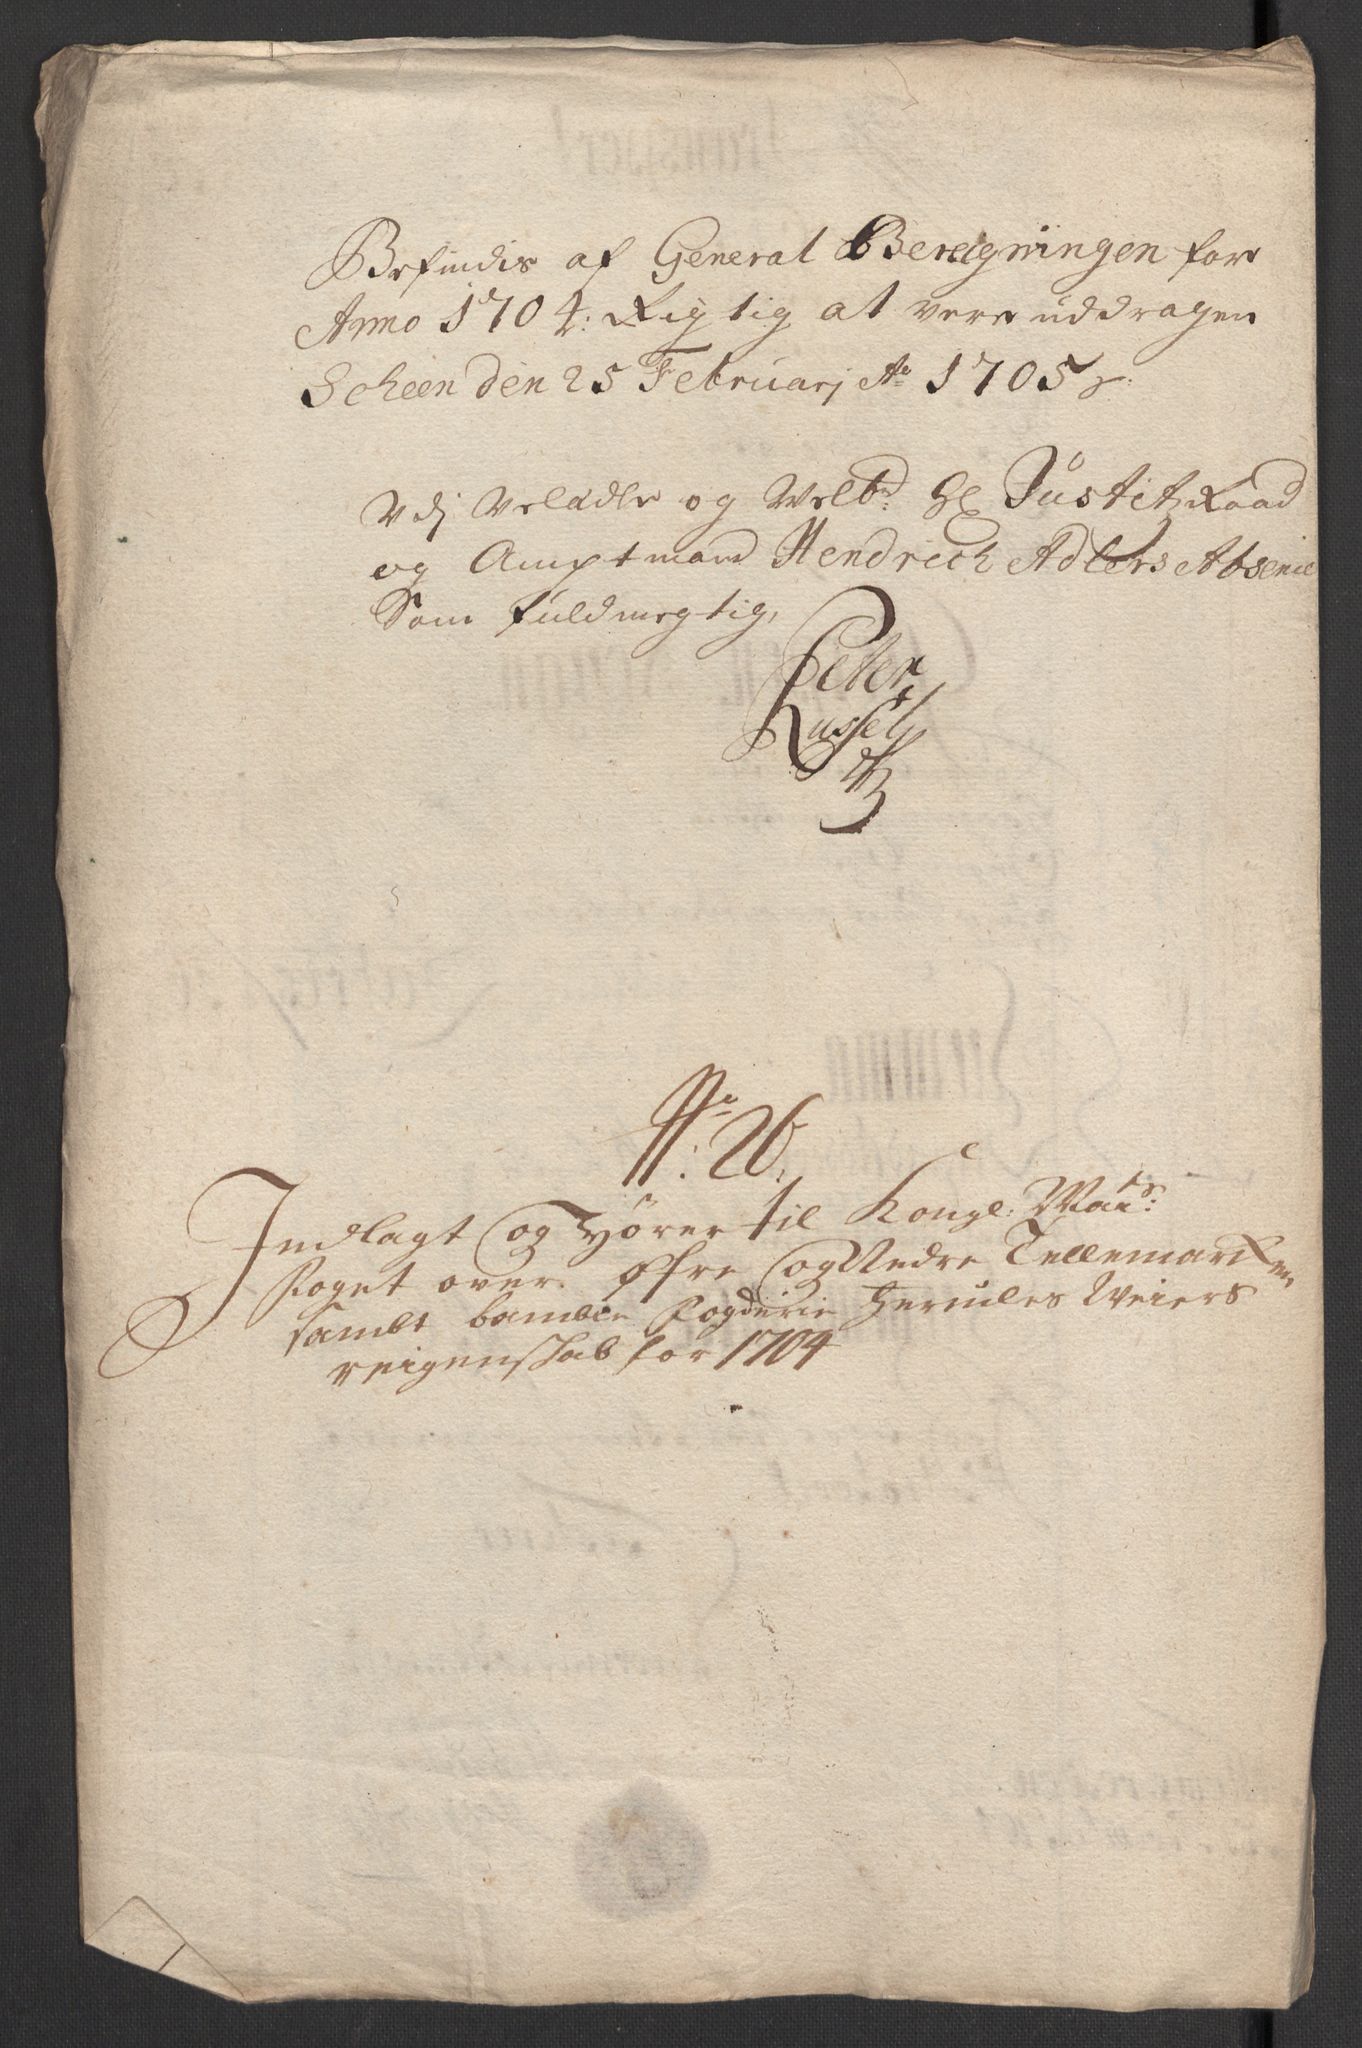 Befindis af General Beregningen for
Anno 1704: Rigtig at vere uddragen
Scheen den 25 Februarj Ao 1705
Udj Velædle og Velbd: Hr Justitz Raad
og Amptmand Hendrech Adlers Absence
Som fuldmegtig,
Peter
Russel
No: 26.
Indlagt og hörer til Kongl: Maits:
foget over öfre og Nedre Tellemarken
sambt bamble fogderie Herculis Weiers
reigenskab for 1704